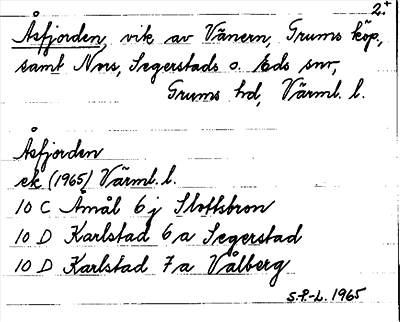 2.+
Åsfjorden, vik av Vänern, Grums köp,
samt Nors, Segerstads o. Eds snr,
Grums hd, Värml. l.
Åsfjorden
ek (1965) Värml. l.
10 C Åmål 6 j Slottsbron
10 D Karlstad 6 a Segerstad
10 D Karlstad 7 a Vålberg
S.P.-L. 1965